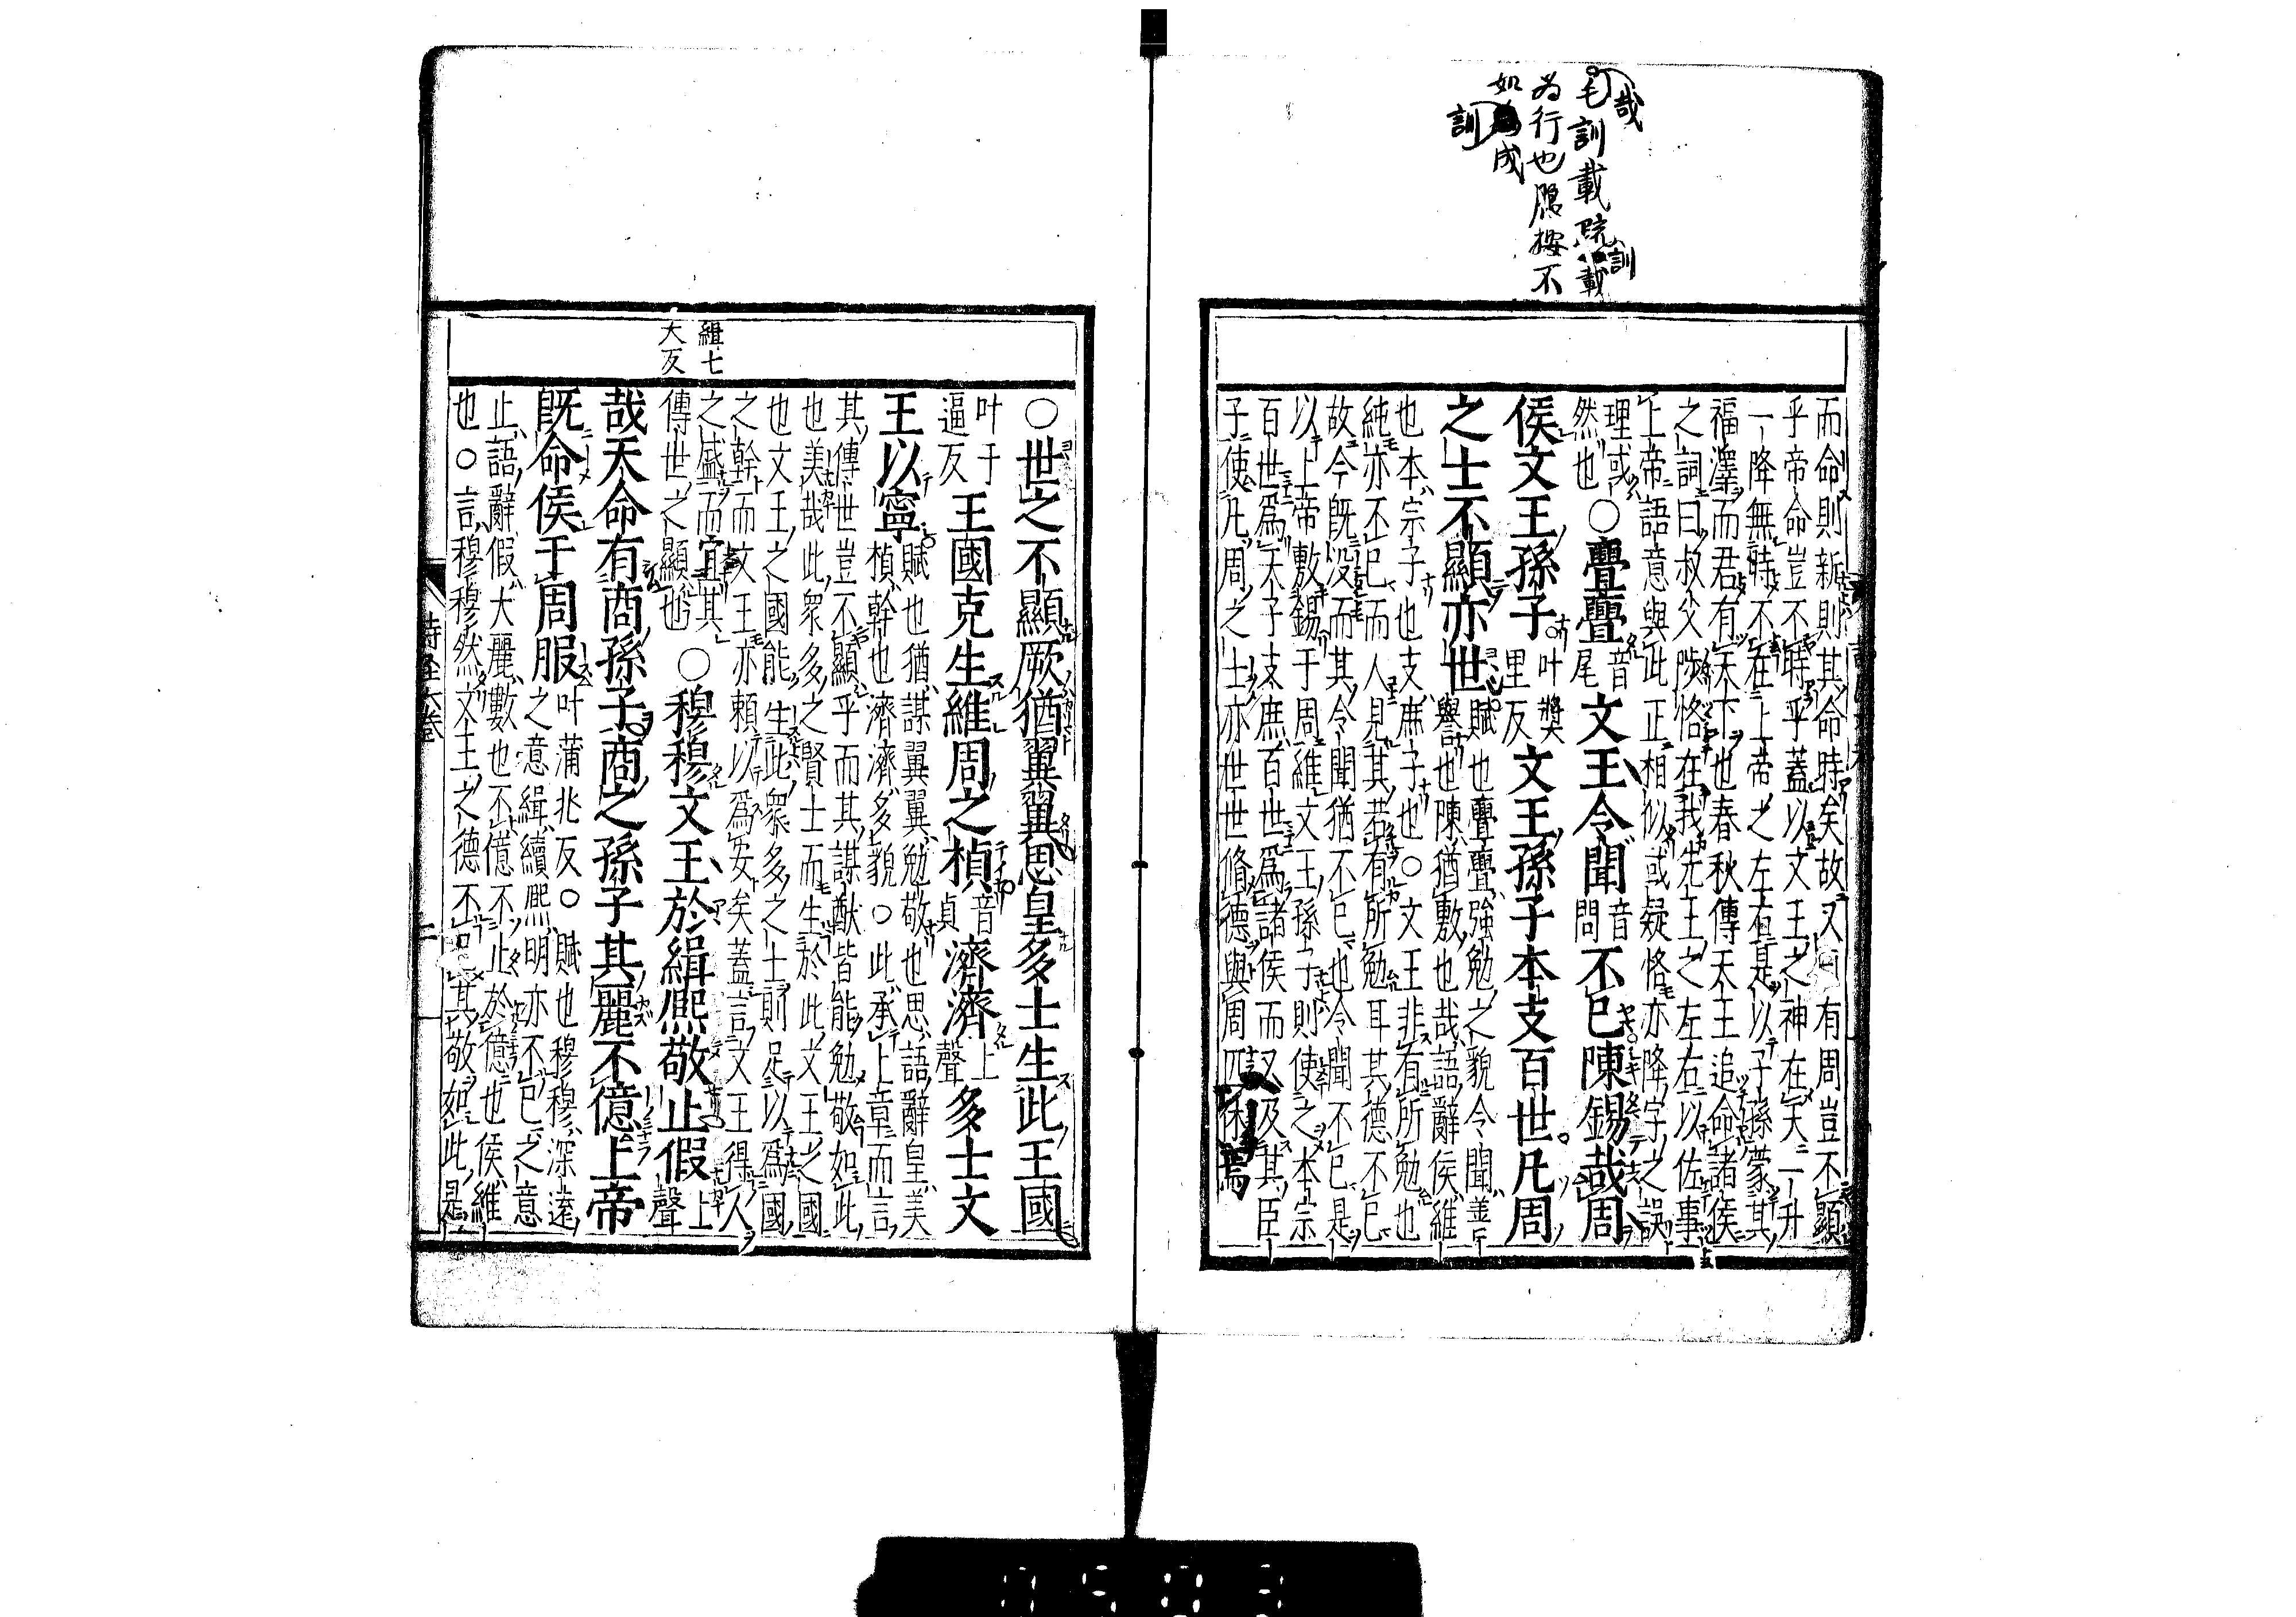 哉
毛訓載疏訓載
為行也愿按不
如成
訓
而命則新則其命時矣故又曰有周豈不顯
乎帝命豈不時乎蓋以文王之神在天一升
一降無時不在上帝之左右是以子孫蒙其
福澤而君有天下也春秋傳天王追命諸侯
之詞曰叔父陟恪在我先王之左右以佐事
上帝語意與此正相似或疑恪亦降字之誤
理或
然也
○亹亹
音
尾
文王令聞
音
問
不已陳錫哉周
侯文王孫子
叶獎
里反
文王孫子本支百世凡周
之士不顯亦世
賦也亹亹強勉之貌令聞善
譽也陳猶敷也哉語辭侯維
也本宗子也支庶子也○文王非有所勉也
純亦不已而人見其若有所勉耳其德不已
故今既没而其令聞猶不已也令聞不已是
以上帝敷錫于周維文王孫子則使之本宗
百世爲天子支庶百世爲諸侯而又及其臣
子使凡周之士亦世世脩德與周匹休焉
○世之不顯厥猶翼翼思皇多士生此王國
叶于
逼反
王國克生維周之楨
音
貞
濟濟
上
聲
多士文
王以寧
賦也猶謀翼翼勉敬也思語辭皇美
楨幹也濟濟多貌○此承上章而言
其傳世豈不顯乎而其謀猷皆能勉敬如此
也美哉此衆多之賢士而生於此文王之國
也文王之國能生此衆多之士則足以爲國
之幹而文王亦賴以爲安矣蓋言文王得人
之盛而宜其
傳世之顯也
○穆穆文王於緝熙敬止假
上
聲
緝七
大反
哉天命有商孫子商之孫子其麗不億上帝
既命侯于周服
叶蒲北反○賦也穆穆深遠
之意緝續熙明亦不已之意
止語辭假大麗數也不億不止於億也侯維
也○言穆穆然文王之德不已其敬如此是
詩経六卷
二